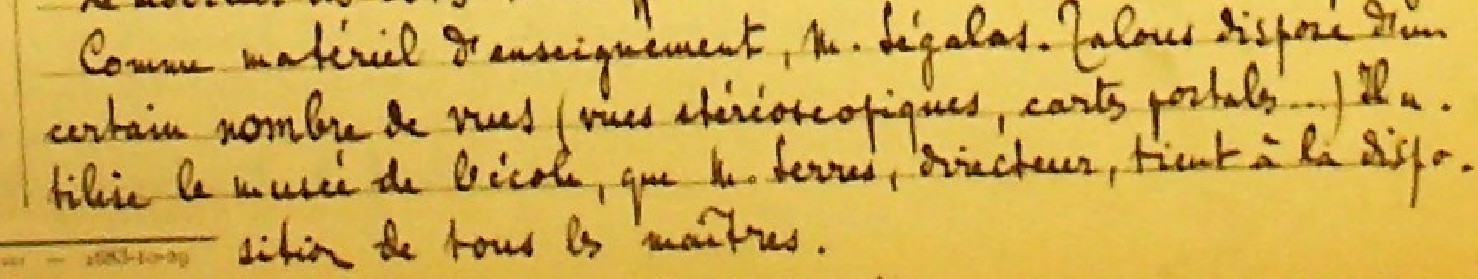 Comme matériel d'enseignement, M. Ségalas. Jalous dispose d'un
certain nombre de vues (vues stéréoscopiques, cartes postales...) Il u-
tilise le musée de l'école, que M. Serres, directeur, tient à la dispo-
sition de tous les maîtres.